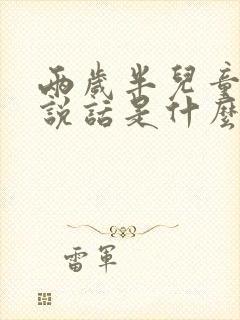 兩歲半兒童
說話是什麼
雷軍